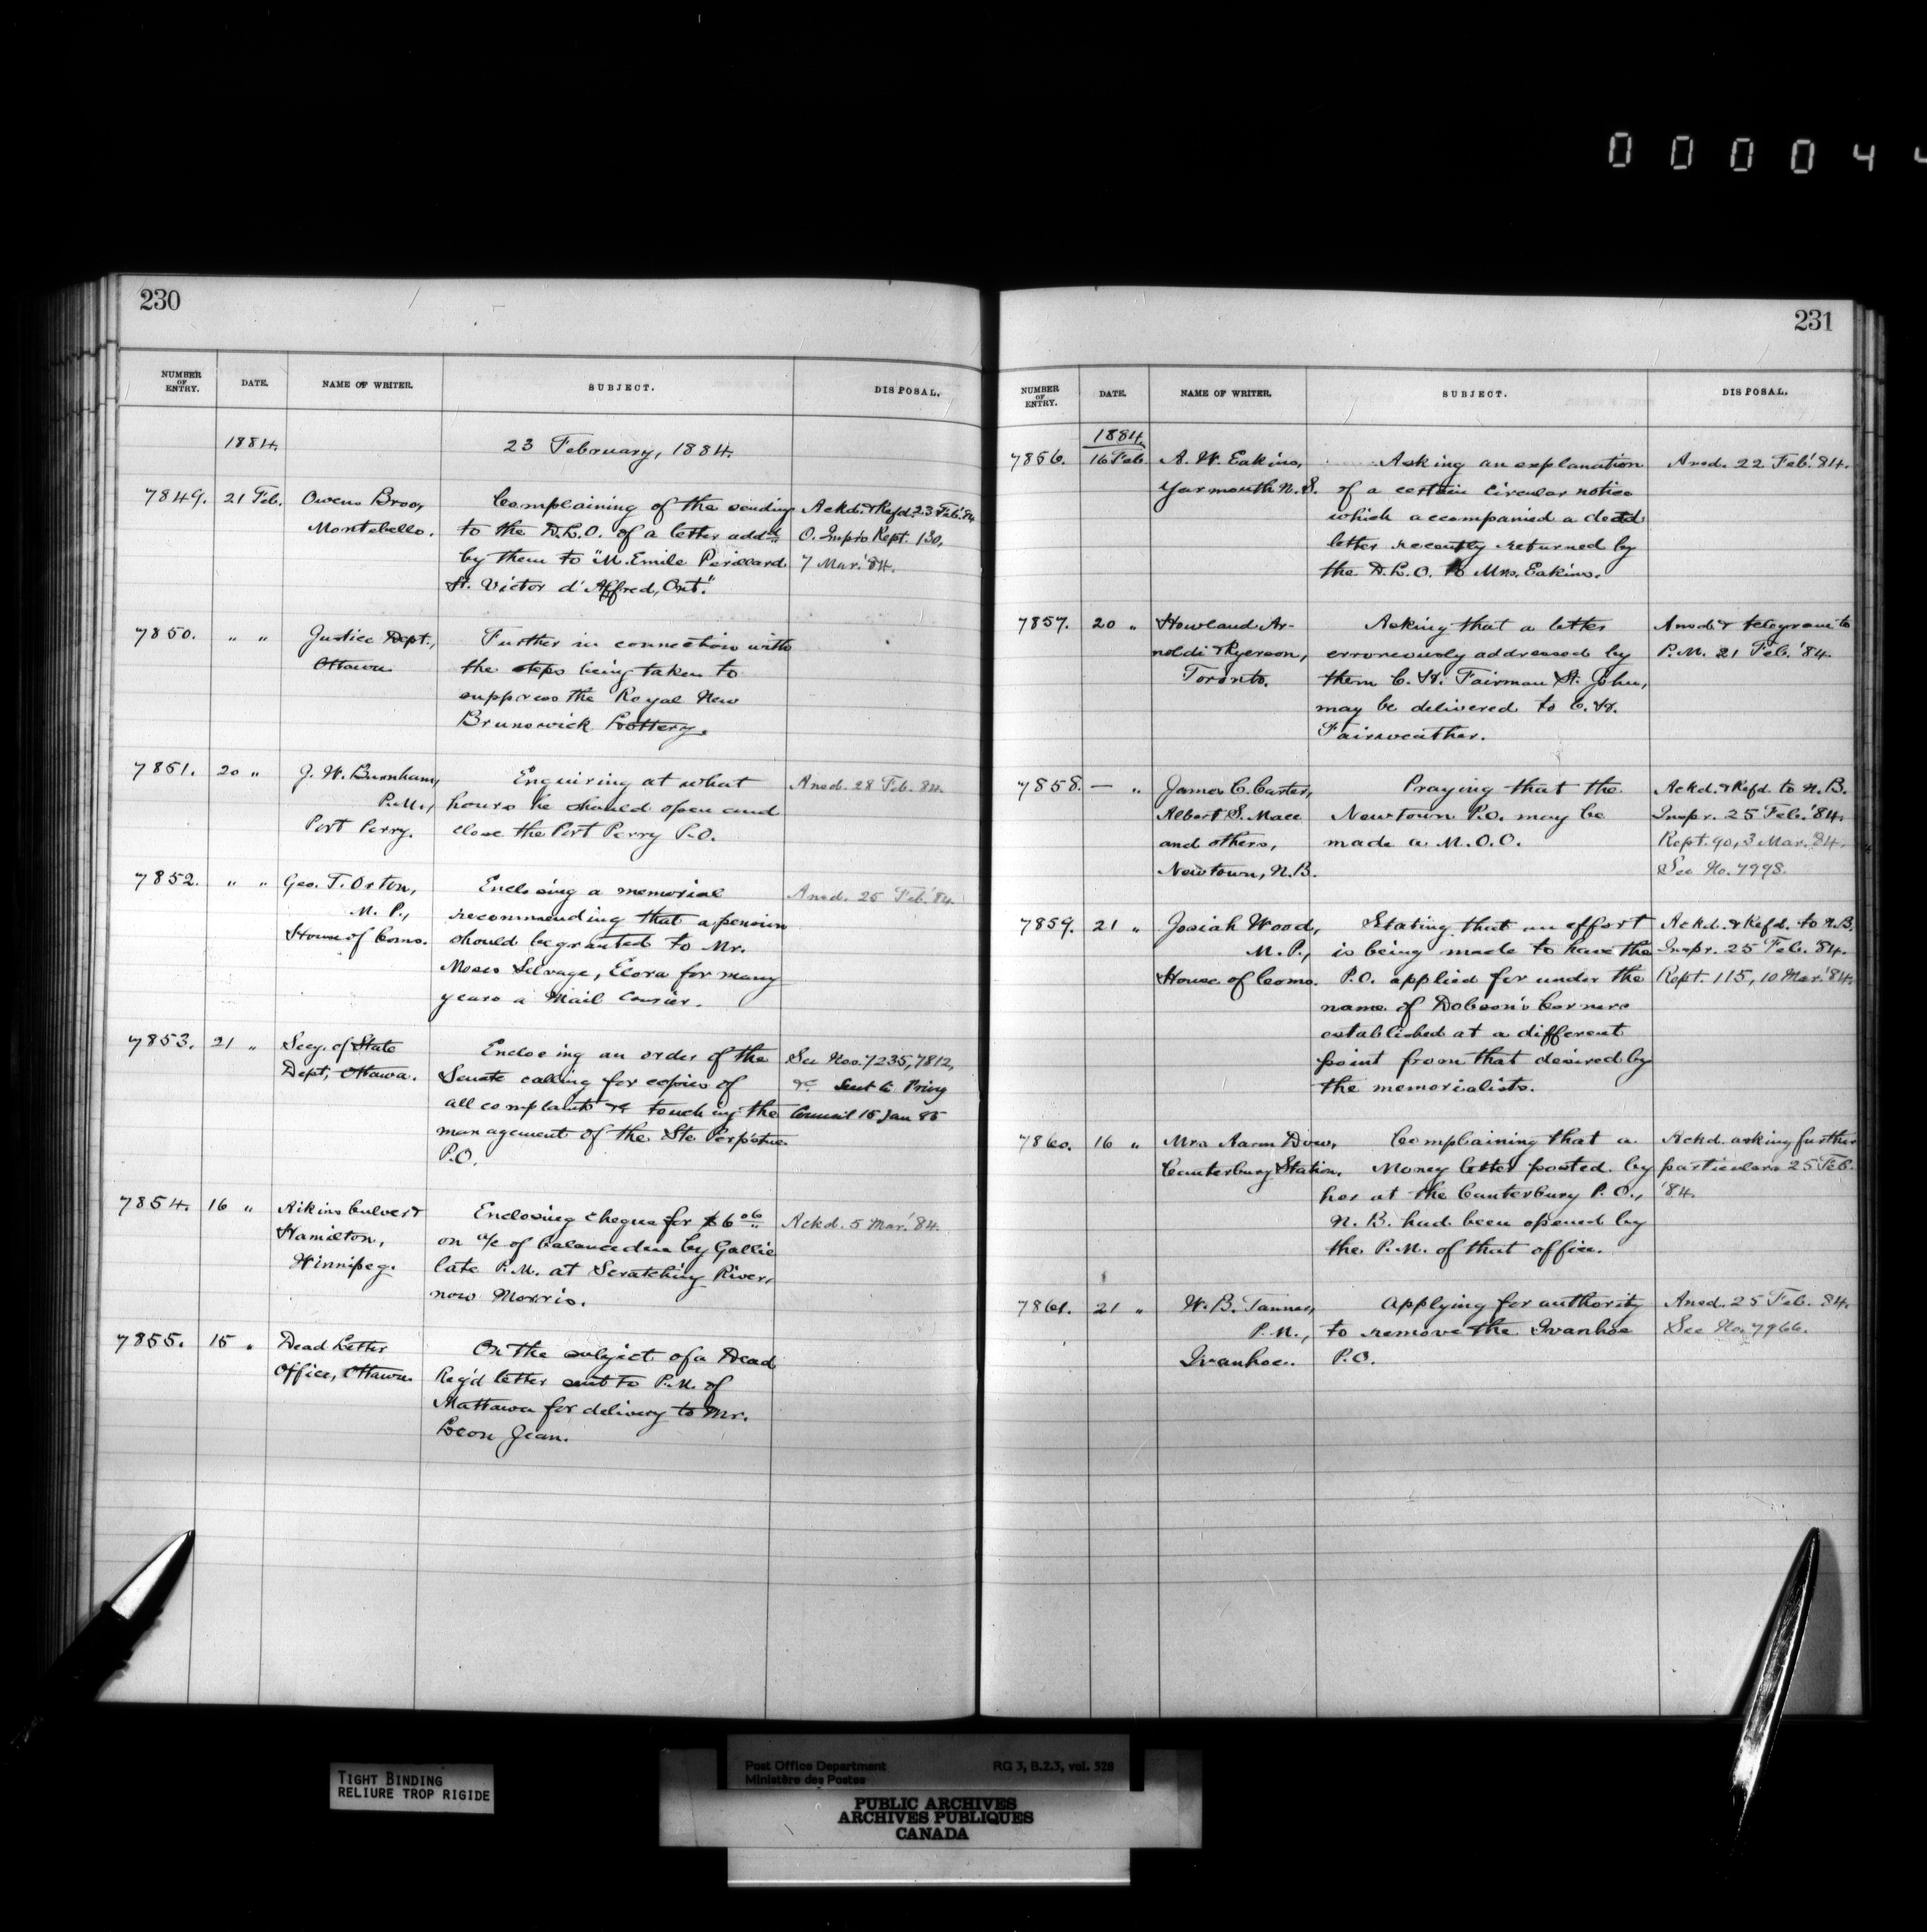 0 0 0 0 4 4
230
NUMBER OF ENTRY. DATE. NAME OF WRITER. SUBJECT. DISPOSAL.
1884. 23 February, 1884.
7849. 21 Feb. Owens Bros, Complaining of the sending Ackd. & Refd. 23 Feb. '84
Montebello. to the D.L.O. of a letter addd O. Inspr's Rept. 130,
by them to "M. Emile Perillard 7 Mar. '84.
St. Victor d'Alfred, Ont."
7850. " " Justice Dept., Further in connection with
Ottawa the steps being taken to
suppress the Royal New
Brunswick Lottery.
7851. 20 " J. W. Burnham, Enquiring at what Ansd. 28 Feb. 84.
P.M., hours he should open and
Port Perry. close the Port Perry P.O.
7852. " " Geo. T. Orton, Enclosing a memorial Ansd. 25 Feb. '84.
M. P., recommending that a pension
House of Coms. should be granted to Mr.
Moses Selvage, Elora for many
years a Mail Courier.
7853. 21 " Secy. of State Enclosing an order of the See Nos. 7235, 7812,
Dept, Ottawa. Senate calling for copies of &c Sent to Privy
all complaints &c touching the Council 15 Jan 85
management of the Ste. Perpétue
P.O.
7854. 16 " Aikins Culver & Enclosing cheque for $6 06 Ackd. 5 Mar. '84.
Hamilton, on a/c of balance due by Gallie
Winnipeg. late P.M. at Scratching River,
now Morris.
7855. 15 " Dead Letter On the subject of a Dead
Office, Ottawa Reg'd letter sent to P.M. of
Mattawa for delivery to Mr.
Leon Jean.
231
NUMBER OF ENTRY. DATE. NAME OF WRITER. SUBJECT. DISPOSAL.
1884.
7856. 16 Feb. A. W. Eakins, Asking an explanation Ansd. 22 Feb. '84.
Yarmouth N.S. of a certain circular notice
which accompanied a dead
letter recently returned by
the D.L.O. to Mrs. Eakins.
7857. 20 " Howland Ar- Asking that a letter Ansd. & telegram to
noldi & Ryerson, erroneously addressed by P.M. 21 Feb. '84.
Toronto. them C. H. Fairman St. John,
may be delivered to C. H.
Fairweather.
7858. — " James C. Carter, Praying that the Ackd. & Refd. to N.B.
Albert S. Mace Newtown P.O. may be Inspr. 25 Feb. '84.
and others, made a M.O.O. Rept. 90, 3 Mar. '84.
Newtown, N.B. See No. 7998.
7859. 21 " Josiah Wood, Stating that an effort Ackd. & Refd. to N.B.
M.P., is being made to have the Inspr. 25 Feb. '84.
House of Coms. P.O. applied for under the Rept. 115, 10 Mar. '84.
name of Dobson's Corners
established at a different
point from that desired by
the memorialists.
7860. 16 " Mrs Aaron Dow, Complaining that a Ackd. asking further
Canterbury Station, Money letter posted by particulars 25 Feb.
her at the Canterbury P.O., '84.
N. B. had been opened by
the P.M. of that office.
7861. 21 " W. B. Tanner, Applying for authority Ansd. 25 Feb. 84.
P.M., to remove the Ivanhoe See No. 7966.
Ivanhoe. P.O.
TIGHT BINDING
RELIURE TROP RIGIDE
Post Office Department RG 3, B.2.3, vol. 528
Ministère des Postes
PUBLIC ARCHIVES
ARCHIVES PUBLIQUES
CANADA